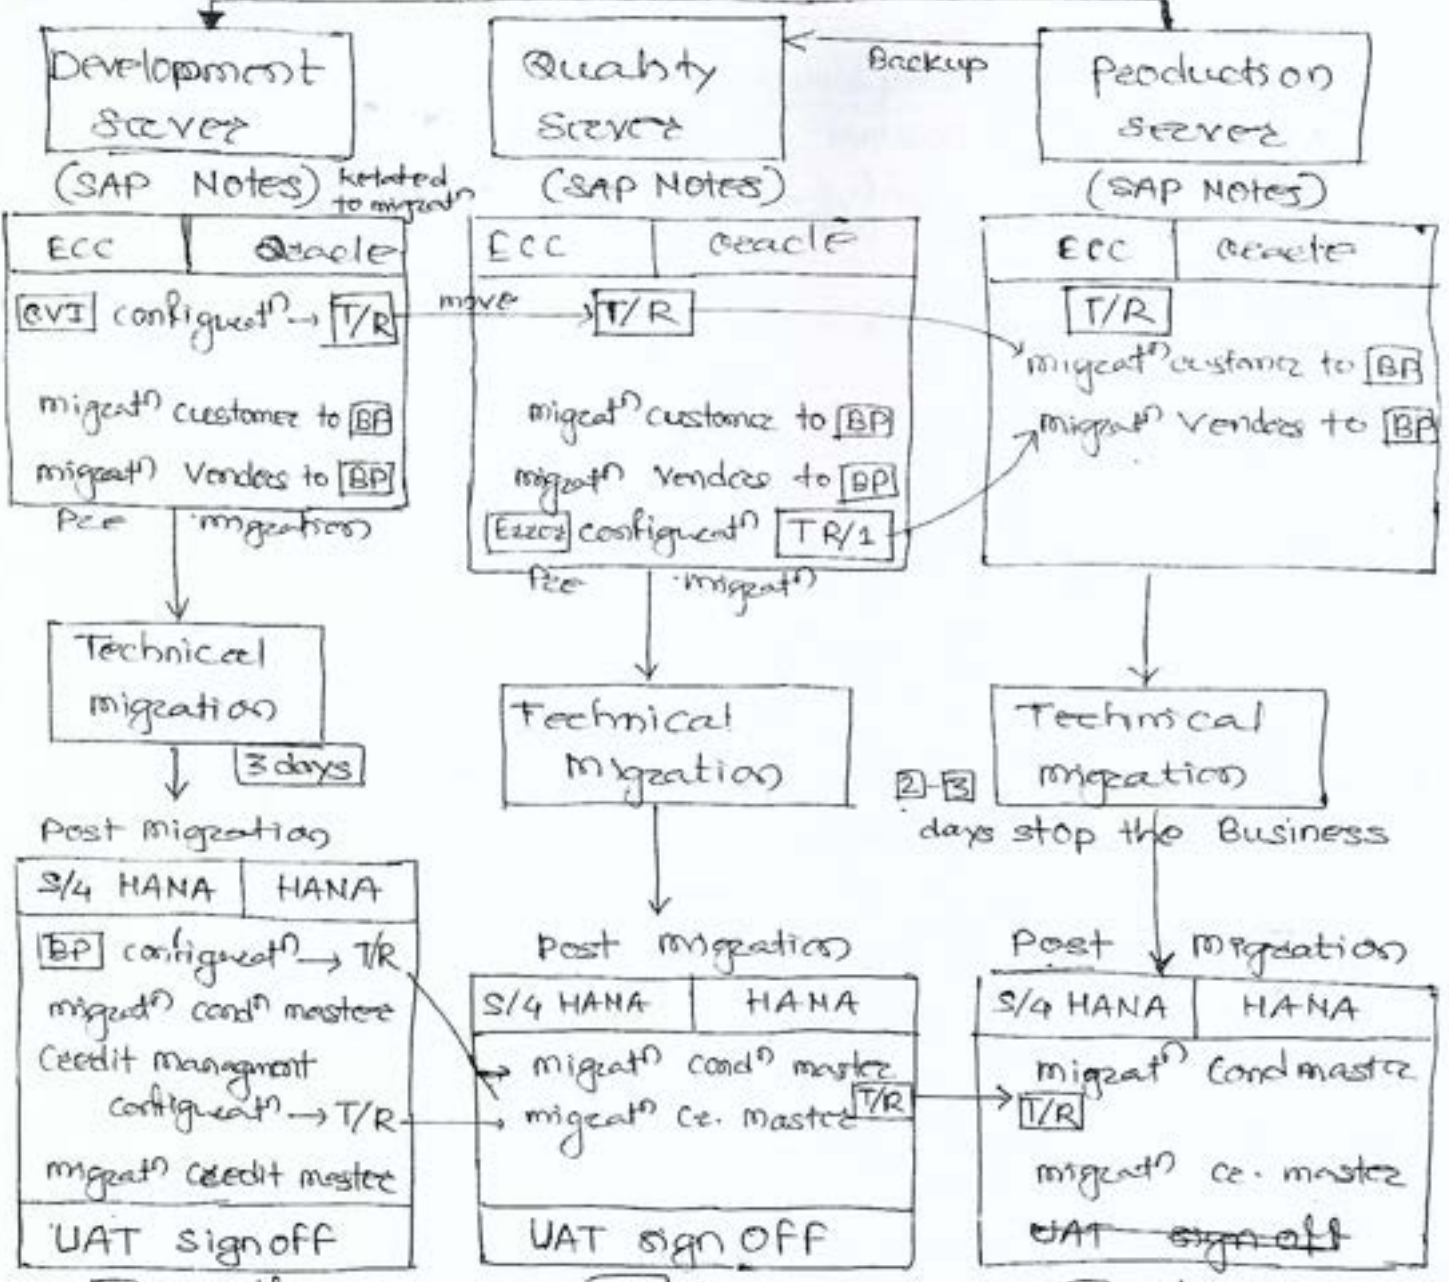 Development
Server
(SAP Notes) Related
to migratn
ECC Oracle
CVI configuratn → T/R
migratn customer to BP
migratn Vendors to BP
Pre migration
Technical
migration
3 days
Post migration
S/4 HANA HANA
BP configuratn → T/R
migratn condn master
Credit Managment
configuratn → T/R
migratn credit master
UAT signoff
move
Quality
Server
(SAP Notes)
ECC Oracle
T/R
migratn customer to BP
migratn vendors to BP
Error configuratn TR/1
Pre migratn
Technical
Migration
Post migration
S/4 HANA HANA
migratn condn master
migratn cr. master T/R
UAT sign off
Backup
Production
Server
(SAP Notes)
ECC Oracle
T/R
migratn customer to BP
migratn Vendors to BP
Technical
migration
2-3
days stop the Business
Post Migration
S/4 HANA HANA
migratn Cond master
T/R
migratn cr. master
UAT sign off